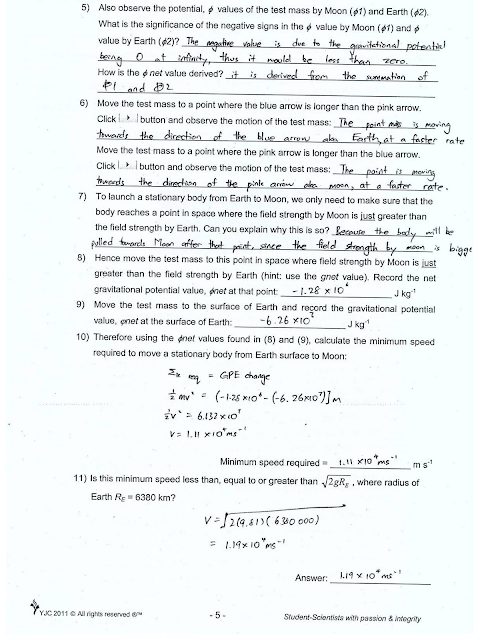 5) Also observe the potential, ϕ values of the test mass by Moon (ϕ1) and Earth (ϕ2).
What is the significance of the negative signs in the ϕ value by Moon (ϕ1) and ϕ
value by Earth (ϕ2)? The negative value is due to the gravitational potential
being 0 at infinity, thus it would be less than zero.
How is the ϕ net value derived? it is derived from the summation of
ϕ1 and ϕ2
6) Move the test mass to a point where the blue arrow is longer than the pink arrow.
Click button and observe the motion of the test mass: The point mass is moving
towards the direction of the blue arrow aka Earth, at a faster rate
Move the test mass to a point where the pink arrow is longer than the blue arrow.
Click button and observe the motion of the test mass: The point is moving
towards the direction of the pink arrow aka moon, at a faster rate.
7) To launch a stationary body from Earth to Moon, we only need to make sure that the
body reaches a point in space where the field strength by Moon is just greater than
the field strength by Earth. Can you explain why this is so? Because the body will be
pulled towards Moon after that point, since the field strength by moon is bigge
8) Hence move the test mass to this point in space where field strength by Moon is just
greater than the field strength by Earth (hint: use the gnet value). Record the net
gravitational potential value, ϕnet at that point: -1.28 x 10⁶ J kg⁻¹
9) Move the test mass to the surface of Earth and record the gravitational potential
value, ϕnet at the surface of Earth: -6.26 x10⁷ J kg⁻¹
10) Therefore using the ϕnet values found in (8) and (9), calculate the minimum speed
required to move a stationary body from Earth surface to Moon:
req = GPE change
½ mv² = (-1.28 x10⁶ - (-6.26x10⁷)] m
½v² = 6.132 x10⁷
V = 1.11 x10⁴ms⁻¹
Minimum speed required = 1.11 x10⁴ms⁻¹ m s⁻¹
11) Is this minimum speed less than, equal to or greater than √2gR_E, where radius of
Earth R_E = 6380 km?
V = √2(9.81)(6380 000)
= 1.19x10⁴ms⁻¹
Answer: 1.19 x 10⁴ ms⁻¹
YJC 2011 © All rights reserved ®™ - 5 - Student-Scientists with passion & integrity